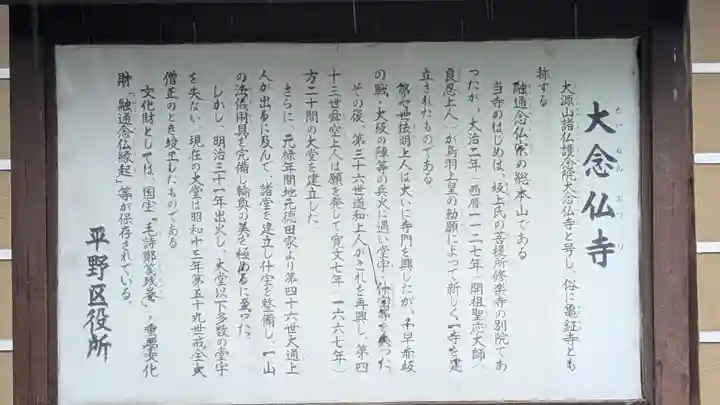 大念仏寺
だいねんぶつじ
大源山諸仏護念院大念仏寺と号し、俗に亀鉦寺とも
称する
融通念仏宗の総本山である
当寺のはじめは、坂上氏の菩提所修楽寺の別院であ
ったが、大治二年(西暦一一二七年)開祖聖応大師(
良忍上人)が鳥羽上皇の勅願によって新しく一寺を建
立されたものである
第七世法明上人は大いに寺門を興したが、千早赤坂
の戦・大阪の陣等の兵火に遇い堂宇・什宝等を失った
その後、第三十六世道和上人がこれを再興し、第四
十三世舜空上人は願を発して寛文七年(一六六七年)
方二十間の大堂を建立した
さらに、元禄年間地元徳田家より第四十六世大通上
人が出るに及んで、諸堂を建立し什宝を整備し、一山
の法儀用具を完備し輪奥の美を極めるに至った
しかし、明治三十一年出火し、大堂以下多数の堂宇
を失い、現在の大堂は昭和十三年第五十九世戒全大
僧正のとき竣工したものである
文化財としては、国宝「毛詩鄭箋残巻」、重要文化
財「融通念仏縁起」等が保存されている。
平野区役所